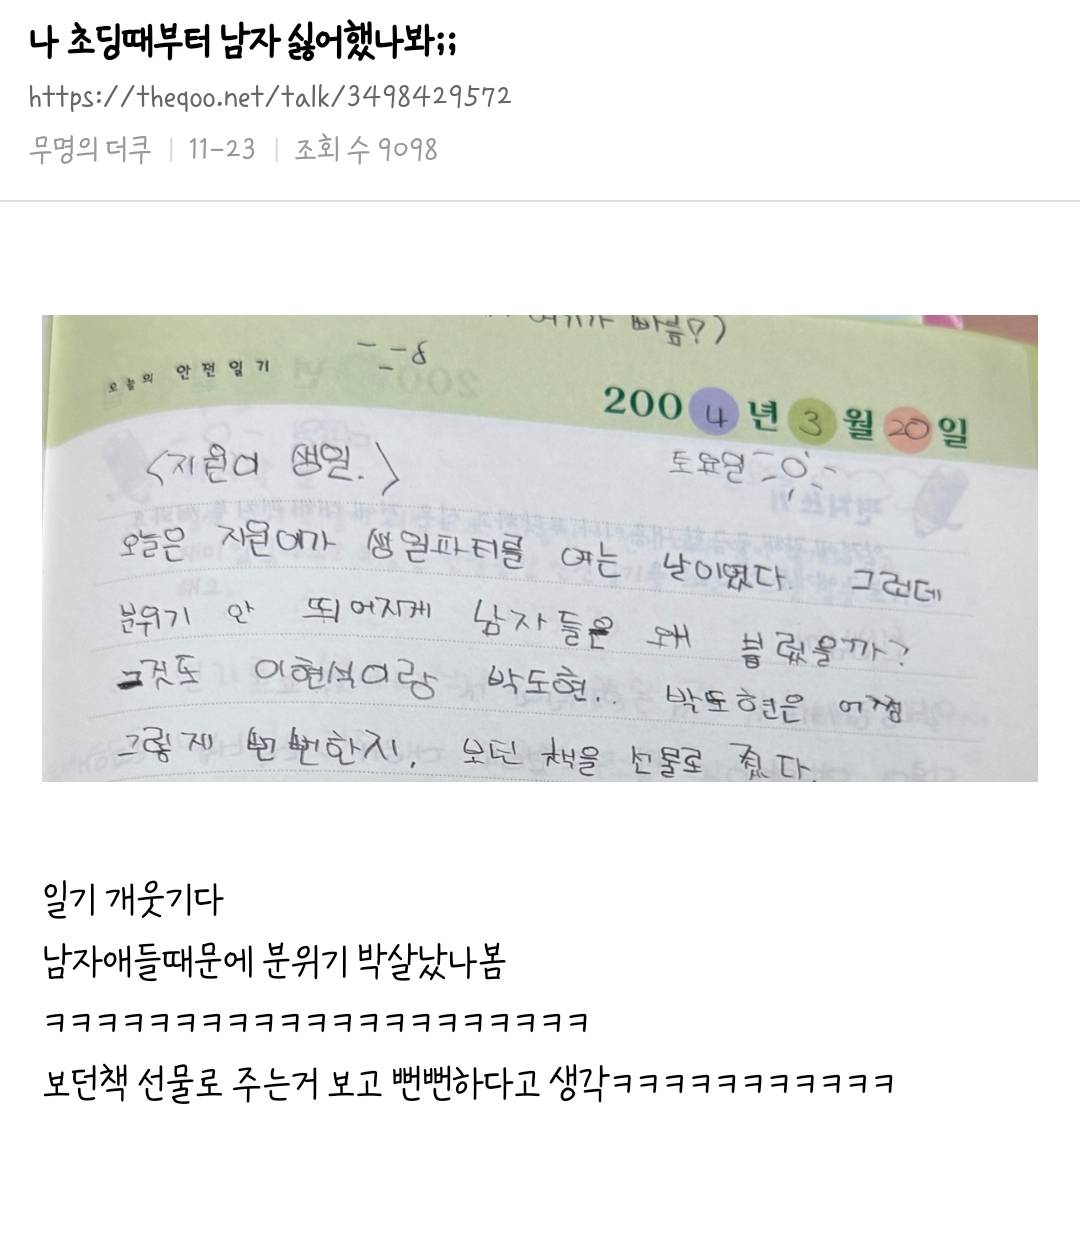 나 초딩때부터 남자 싫어했나봐;;
https://theqoo.net/talk/3498429572
무명의 더쿠 | 11-23 | 조회 수 9098
빠름?)
오늘의 안전일기
2004년 3월 20일
<지원이 생일.> 토요일
오늘은 지원이가 생일파티를 여는 날이였다. 그런데
분위기 안 띄어지게 남자들은 왜 불렀을까?
그것도 이현석이랑 박도현.. 박도현은 어쩜
그렇게 뻔뻔한지, 보던 책을 선물로 줬다.
일기 개웃기다
남자애들때문에 분위기 박살났나봄
ㅋㅋㅋㅋㅋㅋㅋㅋㅋㅋㅋㅋㅋㅋㅋㅋㅋㅋㅋㅋㅋ
보던책 선물로 주는거 보고 뻔뻔하다고 생각ㅋㅋㅋㅋㅋㅋㅋㅋㅋㅋㅋ